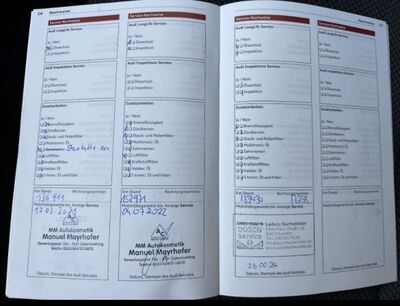 Nachweise
Service-Nachweise
Audi LongLife Service:
Ja / Nein
Ölwechsel
Inspektion
Audi Inspektions Service:
Ja / Nein
Ölwechsel
Inspektion
Zusatzarbeiten:
Bremsflüssigkeit
Zündkerzen
Staub- und Pollenfilter
Multitronic Öl
Zahnriemen
Luftfilter
Kraftstofffilter
Haldex Öl
S-tronic Öl und Filter
Km Stand
Rechnungsnummer:
136 911
Mobilitätsgarantie bis: Anzeige Service
17.03.2021
MM Autokosmetik
Manuel Mayrhofer
Datum, Stempel des Audi Betriebs
Service-Nachweise
Audi LongLife Service:
Ja / Nein
Ölwechsel
Inspektion
Audi Inspektions Service:
Ja / Nein
Ölwechsel
Inspektion
Zusatzarbeiten:
Bremsflüssigkeit
Zündkerzen
Staub- und Pollenfilter
Multitronic Öl
Zahnriemen
Luftfilter
Kraftstofffilter
Haldex Öl
S-tronic Öl und Filter
Km Stand
Rechnungsnummer:
152971
Mobilitätsgarantie bis: Anzeige Service
04.07.2022
MM Autokosmetik
Manuel Mayrhofer
Datum, Stempel des Audi Betriebs
Nachweise
Service-Nachweise
Audi LongLife Service:
Ja / Nein
Ölwechsel
Inspektion
Audi Inspektions Service:
Ja / Nein
Ölwechsel
Inspektion
Zusatzarbeiten:
Bremsflüssigkeit
Zündkerzen
Staub- und Pollenfilter
Multitronic Öl
Zahnriemen
Luftfilter
Kraftstofffilter
Haldex Öl
S-tronic Öl und Filter
Km Stand
Rechnungsnummer:
Mobilitätsgarantie bis: Anzeige Service
BOSCH
Service
26.02.24
Datum, Stempel des Audi Betriebs
Service-Nachweise
Audi LongLife Service:
Ja / Nein
Ölwechsel
Inspektion
Audi Inspektions Service:
Ja / Nein
Ölwechsel
Inspektion
Zusatzarbeiten:
Bremsflüssigkeit
Zündkerzen
Staub- und Pollenfilter
Multitronic Öl
Zahnriemen
Luftfilter
Kraftstofffilter
Haldex Öl
S-tronic Öl und Filter
Km Stand
Rechnungsnummer:
Mobilitätsgarantie bis: Anzeige Service
Datum, Stempel des Audi Betriebs